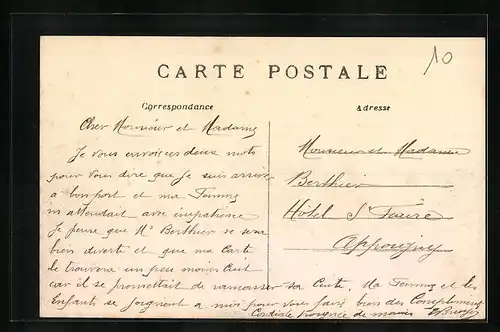 10
CARTE POSTALE
Correspondance
Adresse
Cher Monsieur et Madame
Je vous envoie ces deux mots
pour vous dire que je suis arrivé
à bon port et ma Femme
m'attendait avec impatience
Je pense que Mr Berthier se sera
bien diverti et que ma Carte
le trouvera un peu moins Cuit
car il se promettait de ramasser sa Cuite, Ma Femme et les
Enfants se joignent à moi pour vous faire bien des Compliments
Cordiale Poignée de mains
Monsieur et Madame
Berthier
Hôtel St
Appoigny